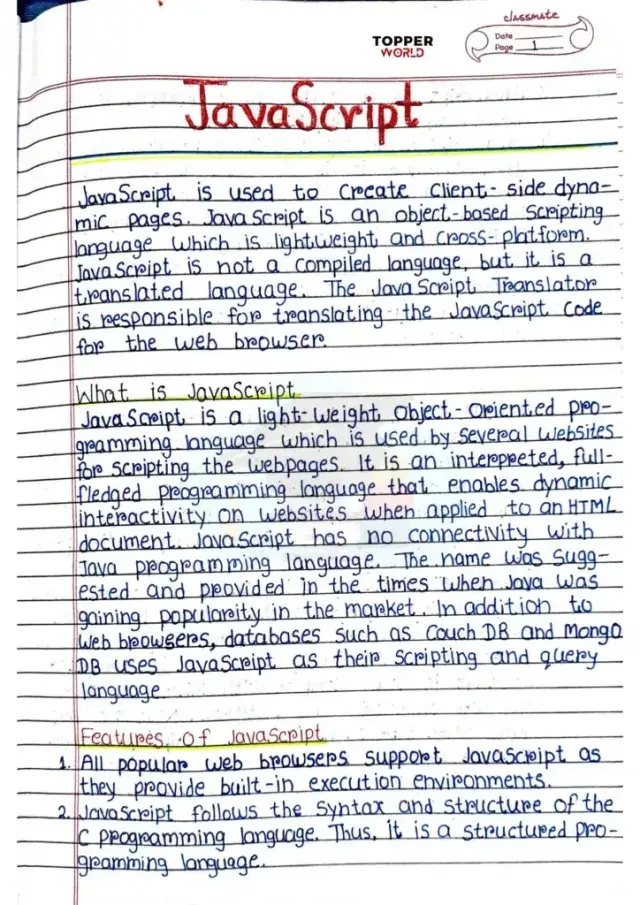 classmate
TOPPER
WORLD
Date
Page 1
JavaScript
JavaScript is used to create client-side dyna-
mic pages. JavaScript is an object-based scripting
language which is lightweight and cross-platform.
JavaScript is not a compiled language, but it is a
translated language. The JavaScript Translator
is responsible for translating the JavaScript code
for the web browser.
What is JavaScript
JavaScript is a light-weight object-oriented pro-
gramming language which is used by several websites
for scripting the webpages. It is an interpreted, full-
fledged programming language that enables dynamic
interactivity on websites when applied to an HTML
document. JavaScript has no connectivity with
Java programming language. The name was sugg-
ested and provided in the times when Java was
gaining popularity in the market. In addition to
web browsers, databases such as CouchDB and Mongo
DB uses JavaScript as their scripting and query
language
Features of JavaScript
1. All popular web browsers support JavaScript as
they provide built-in execution environments.
2. JavaScript follows the syntax and structure of the
C programming language. Thus, it is a structured pro-
gramming language.